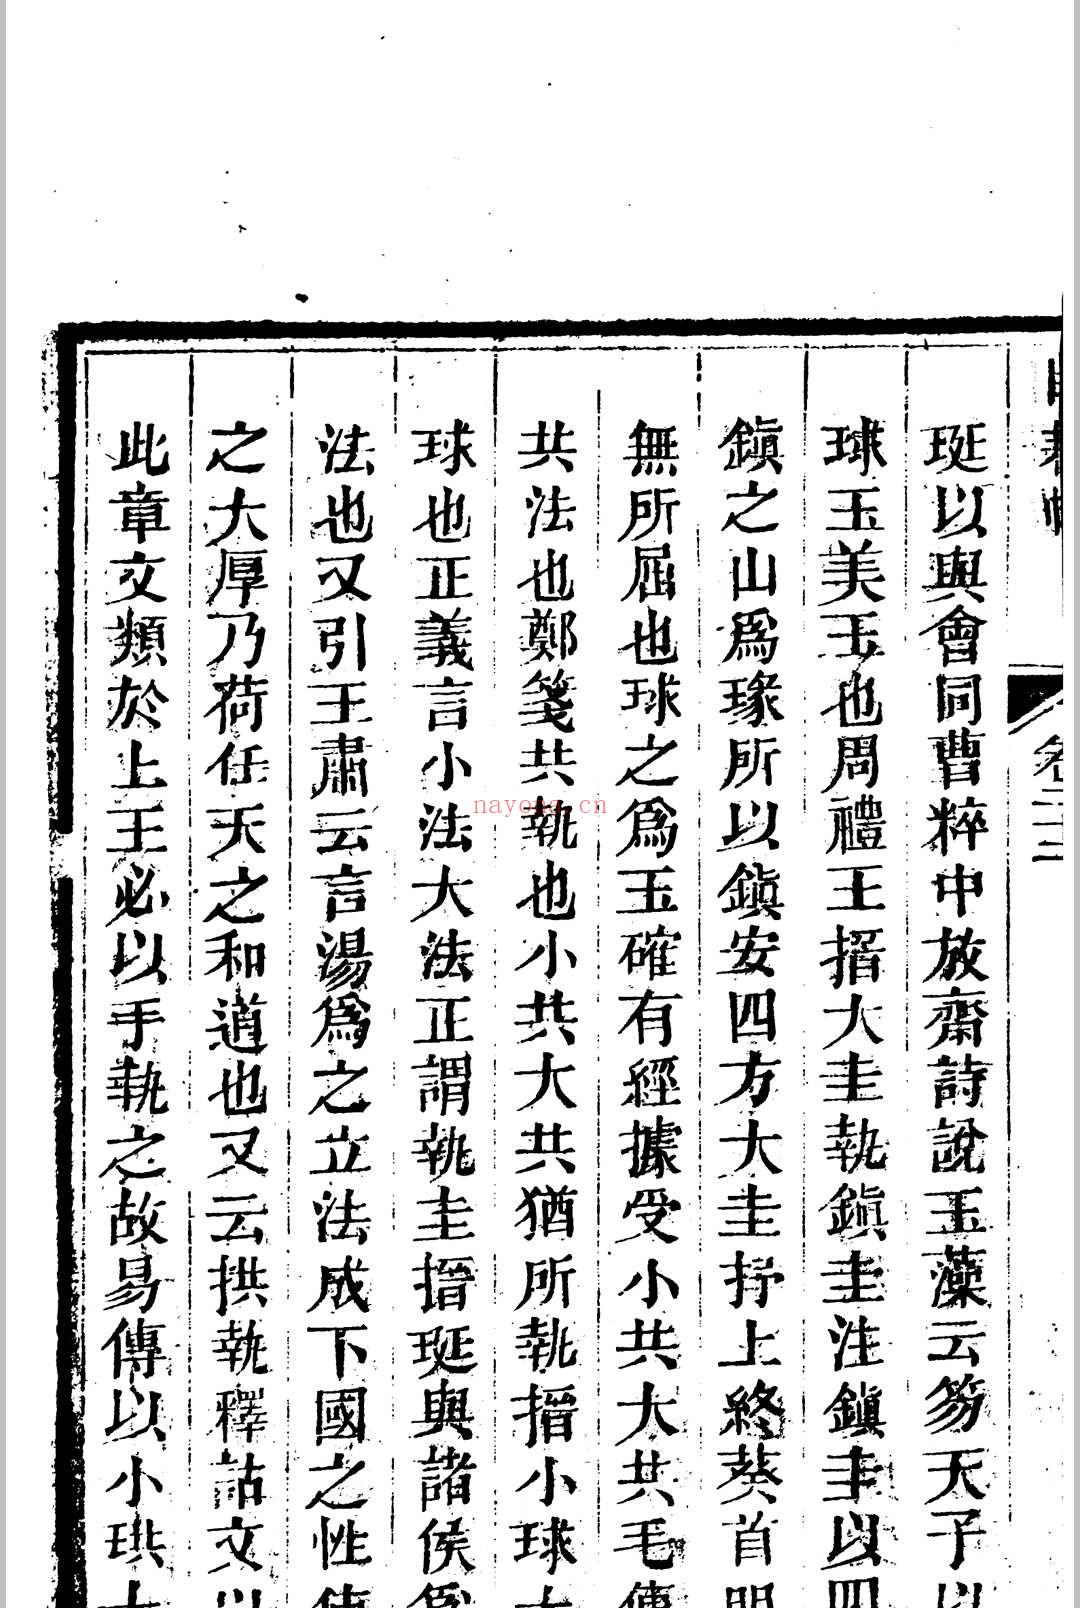 卷二十二
珽以與會同曹粹中放齋詩說玉藻云笏天子以
球玉美玉也周禮王搢大圭執鎮圭注鎮圭以四
鎮之山爲瑑所以鎮安四方大圭抒上終葵首明
無所屈也球之爲玉確有經據受小共大共毛傳
共法也鄭箋共執也小共大共猶所執搢小球大
球也正義言小法大法正謂執圭搢珽與諸侯爲
法也又引王肅云言湯爲之立法成下國之性使
之大厚乃荷任天之和道也又云拱執釋詁文以
此章文類於上玉必以手執之故易傳以小珙大
nayona.cn